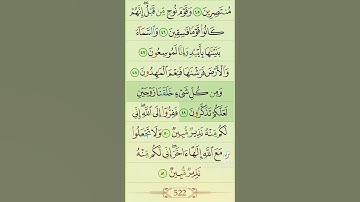 مُنتَصِرِينَ ٤٥ وَقَوْمَ نُوحٍ مِّن قَبْلُ إِنَّهُمْ
كَانُوا۟ قَوْمًا فَٰسِقِينَ ٤٦ وَٱلسَّمَآءَ
بَنَيْنَٰهَا بِأَيْي۟دٍ وَإِنَّا لَمُوسِعُونَ ٤٧
وَٱلْأَرْضَ فَرَشْنَٰهَا فَنِعْمَ ٱلْمَٰهِدُونَ ٤٨
وَمِن كُلِّ شَىْءٍ خَلَقْنَا زَوْجَيْنِ
لَعَلَّكُمْ تَذَكَّرُونَ ٤٩ فَفِرُّوٓا۟ إِلَى ٱللَّهِ إِنِّى
لَكُم مِّنْهُ نَذِيرٌ مُّبِينٌ ٥٠ وَلَا تَجْعَلُوا۟
مَعَ ٱللَّهِ إِلَٰهًا ءَاخَرَ إِنِّى لَكُم مِّنْهُ
نَذِيرٌ مُّبِينٌ ٥١
522